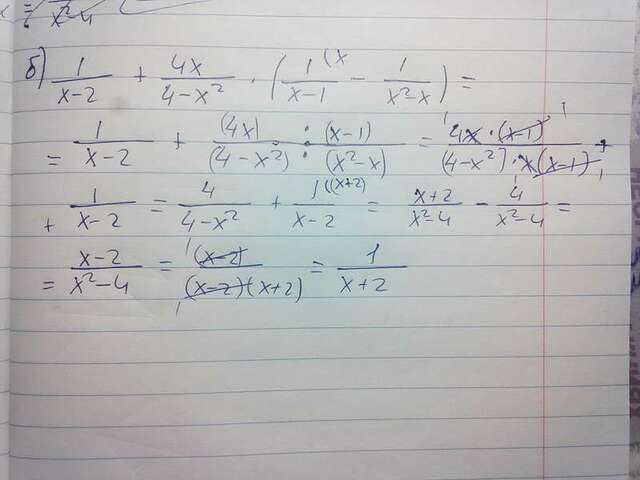 x²-4
б) 1/(x-2) + 4x/(4-x²) · (1(x/(x-1) - 1/(x²-x)) =
= 1/(x-2) + (4x)/(4-x²) : (x-1)/(x²-x) = 4x·(x-1)/((4-x²)·x(x-1)) +
+ 1/(x-2) = 4/(4-x²) + 1((x+2)/(x-2) = (x+2)/(x²-4) - 4/(x²-4) =
= (x-2)/(x²-4) = (x-2)/((x-2)(x+2)) = 1/(x+2)